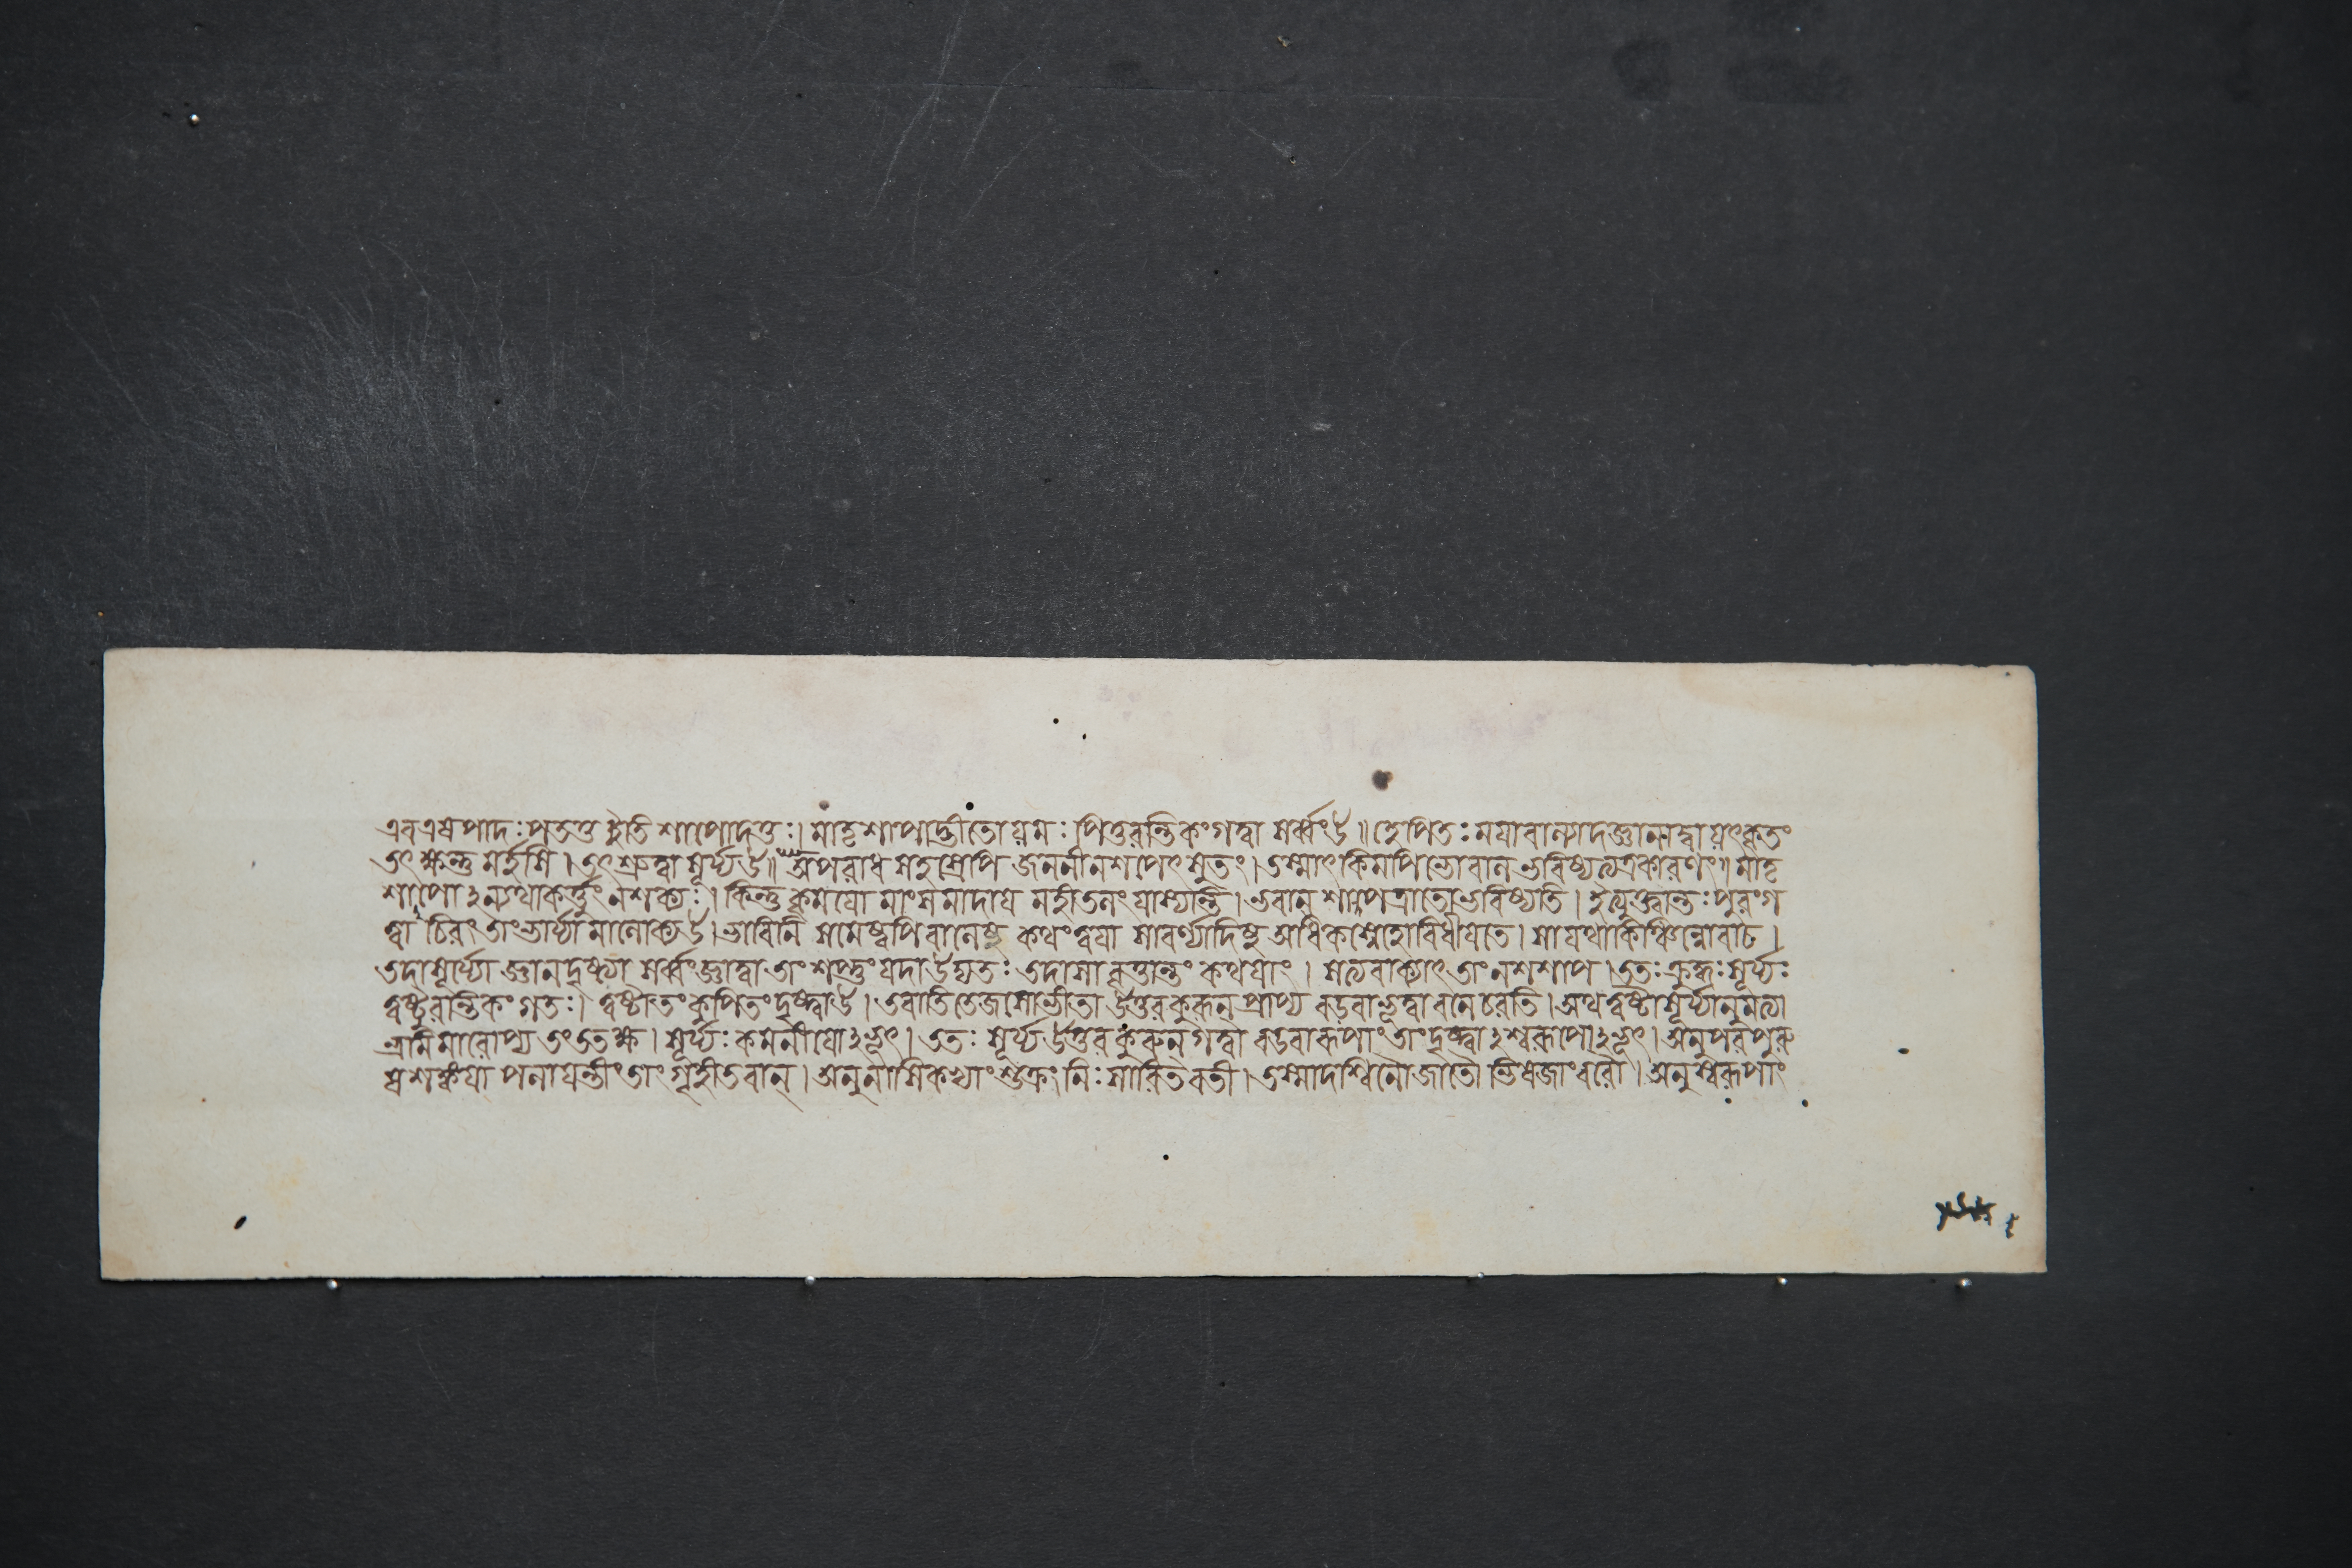 এব এষ পাদঃ পততু ইতি শাপোদত্তঃ। মাতৃশাপাদ্ভীতো যমঃ পিতুরন্তিকং গত্বা সর্ব্বং উ॥ হেপিতঃ ময়াবাল্যাদজ্ঞানাদ্বা যৎকৃতং
তৎ ক্ষন্তুমর্হসি। তৎ শ্রুত্বা সূর্য্য উ॥ অপরাধ সহস্রেপি জননী ন শপেৎ সুতং। তস্মাৎ কিমপি ভো বাল ভবিষ্যত্যত্রকারণং॥ মাতৃ
শাপোঽন্যথাকর্ত্তুং ন শক্যঃ। কিন্তু কৃময়ো মাংসমাদায় মহীতলং যাস্যন্তি। ভবান্ শাপত্রাতো ভবিষ্যতি। ইত্যুক্ত্বান্তঃপুরং গ
ত্বা চিরং তাং ভার্য্যামালোক্য উ। ভাবিনি সমেষ্বপি বালেষু কথং ত্বয়া সাবর্ণ্যাদিষু অধিকস্নেহো বিধীয়তে। সা যথাকিঞ্চিন্নোবাচ।
তদা সূর্য্যো জ্ঞানদৃষ্ট্যা সর্ব্বং জ্ঞাত্বা তাং শপ্তুং যদা উদ্যতঃ তদা সা বৃত্তান্তং কথয়াং। সত্যবাক্যাৎ তাং ন শশাপ। ততঃ ক্রুদ্ধঃ সূর্য্যঃ
ত্বষ্টুরন্তিকং গতঃ। ত্বষ্টা তং কুপিতং দৃষ্ট্বা উ। তবাতিতেজসো ভীতা উত্তরকুরূন্ প্রাপ্য বডবা ভূত্বা বনে চরতি। অথ ত্বষ্টা সূর্য্যানুমত্যা
ভ্রমিমারোপ্য তং ততক্ষ। সূর্য্যঃ কমনীয়োঽভূৎ। ততঃ সূর্য্য উত্তর কুরূন্ গত্বা বডবারূপাং তাং দৃষ্ট্বাঽশ্বরূপোঽভূৎ। অনু পরপুরু
ষ শঙ্কয়া পলায়ন্তীং তাং গৃহীতবান্। অনু নাসিকাভ্যাং শুক্রং নিঃসারিতবতী। তস্মাদশ্বিনৌ জাতৌ ভিষজাংবরৌ। অনু স্বরূপাং